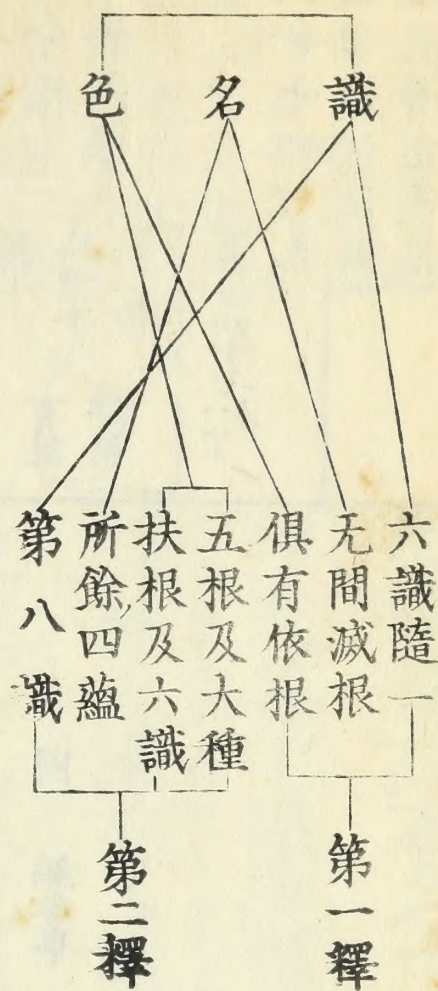 識
名
色
六識隨一
无間滅根
俱有依根
五根及大種
扶根及六識
所餘四蘊
第八識
第一釋
第二釋